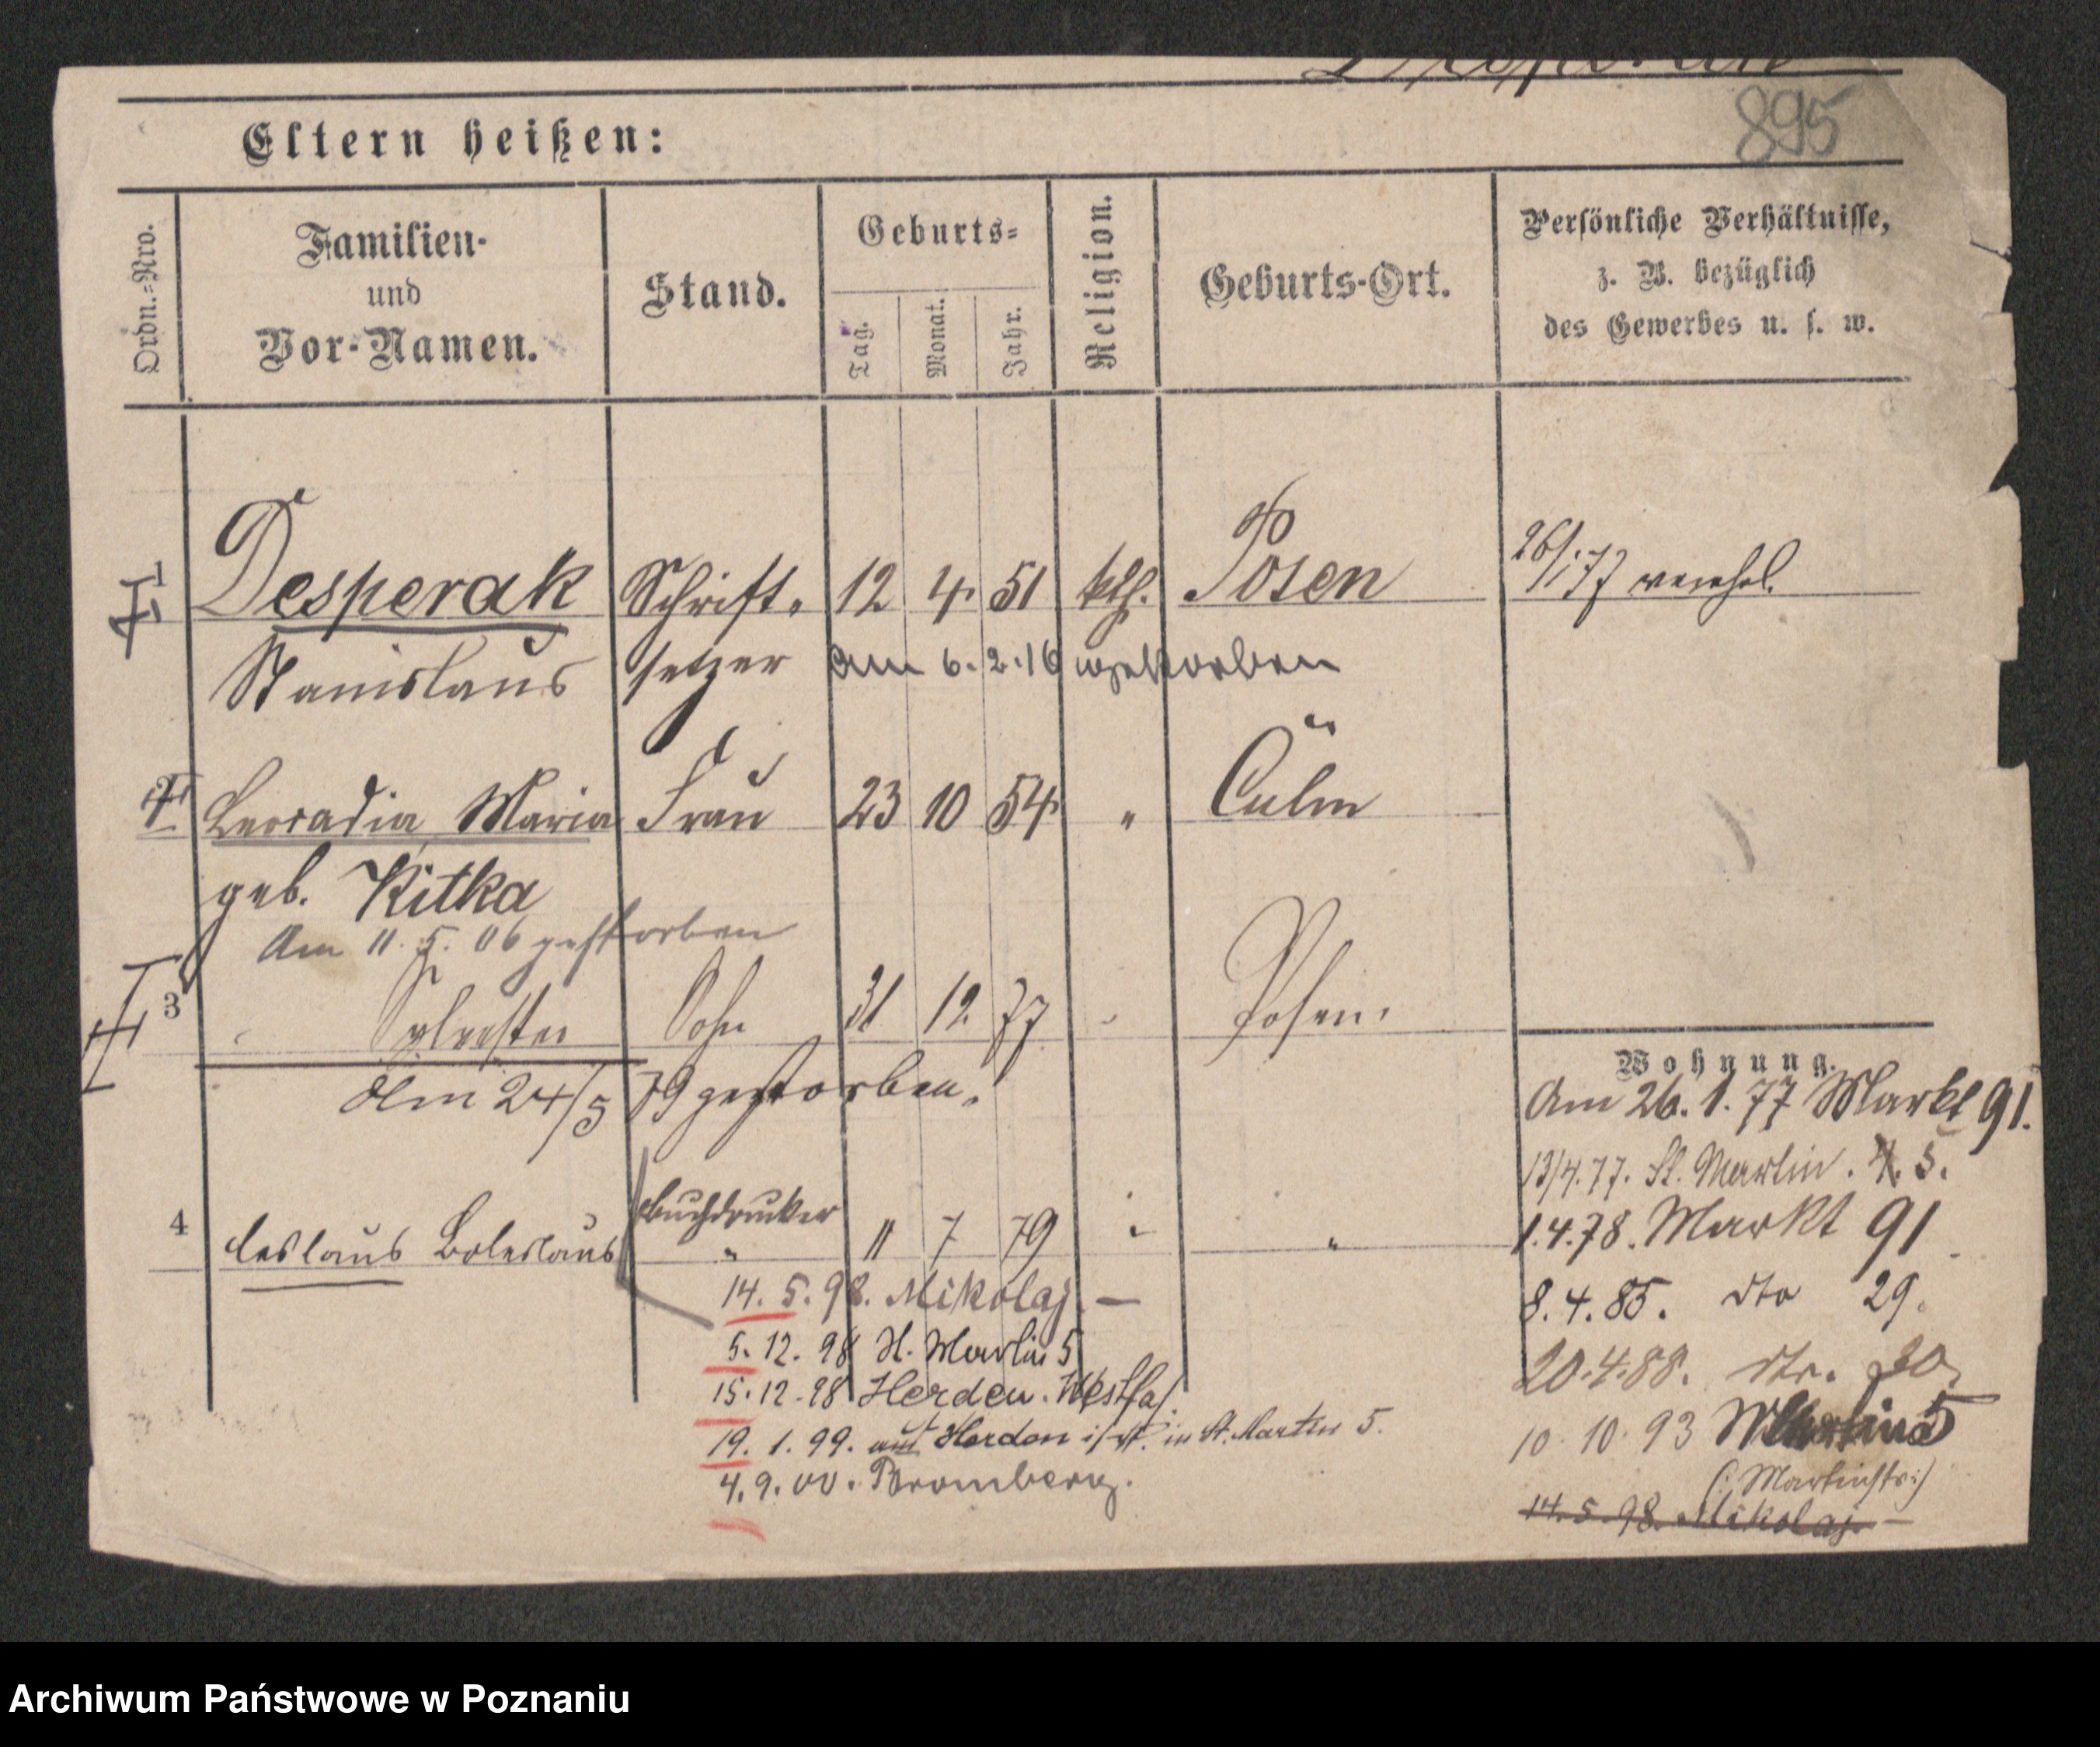 895
Eltern heißen:
Ordn.=Nro.
Familien-
und
Vor-Namen.
Stand.
Geburts=
Tag.
Monat.
Jahr.
Religion.
Geburts-Ort.
Persönliche Verhältnisse,
z. B. bezüglich
des Gewerbes u. s. w.
Desperak Schrift- 12 4. 51 kth. Posen 26/1. 77 verehel.
Stanislaus setzer am 6. 2. 16 gestorben
Leocadia Maria Frau 23 10 54 " Culm
geb. Kitka
Am 11. 5. 06 gestorben
3 Sylvester Sohn 31 12 77 " Posen.
Am 24/5 79 gestorben.
Wohnung.
Am 26. 1. 77 Markt 91.
13/4. 77. St. Martin. 5.
4 Ceslaus Boleslaus Buchdrucker " 11 7 79 " "
1. 4. 78. Markt 91
14. 5. 98. Mikolaj. —
8. 4. 85. dto 29.
5. 12. 98 St. Martin 5
20. 4. 88. dto.
15. 12. 98 Herden. Westfal.
10. 10. 93
19. 1. 99. aus Herdon St. Martin 5.
(: Martinstr:)
4. 9. 00. Bromberg.
14. 5. 98. Mikolaj. —
Archiwum Państwowe w Poznaniu